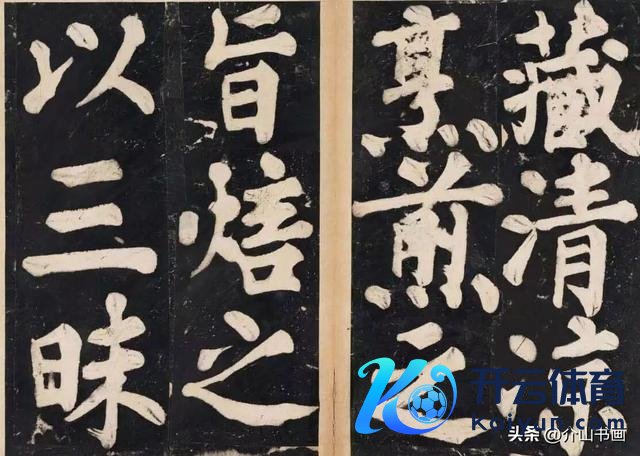 藏清凉
烹煎之
旨焙之
以三昧
开云体育
Kaiyun.com
头条 @介山书画